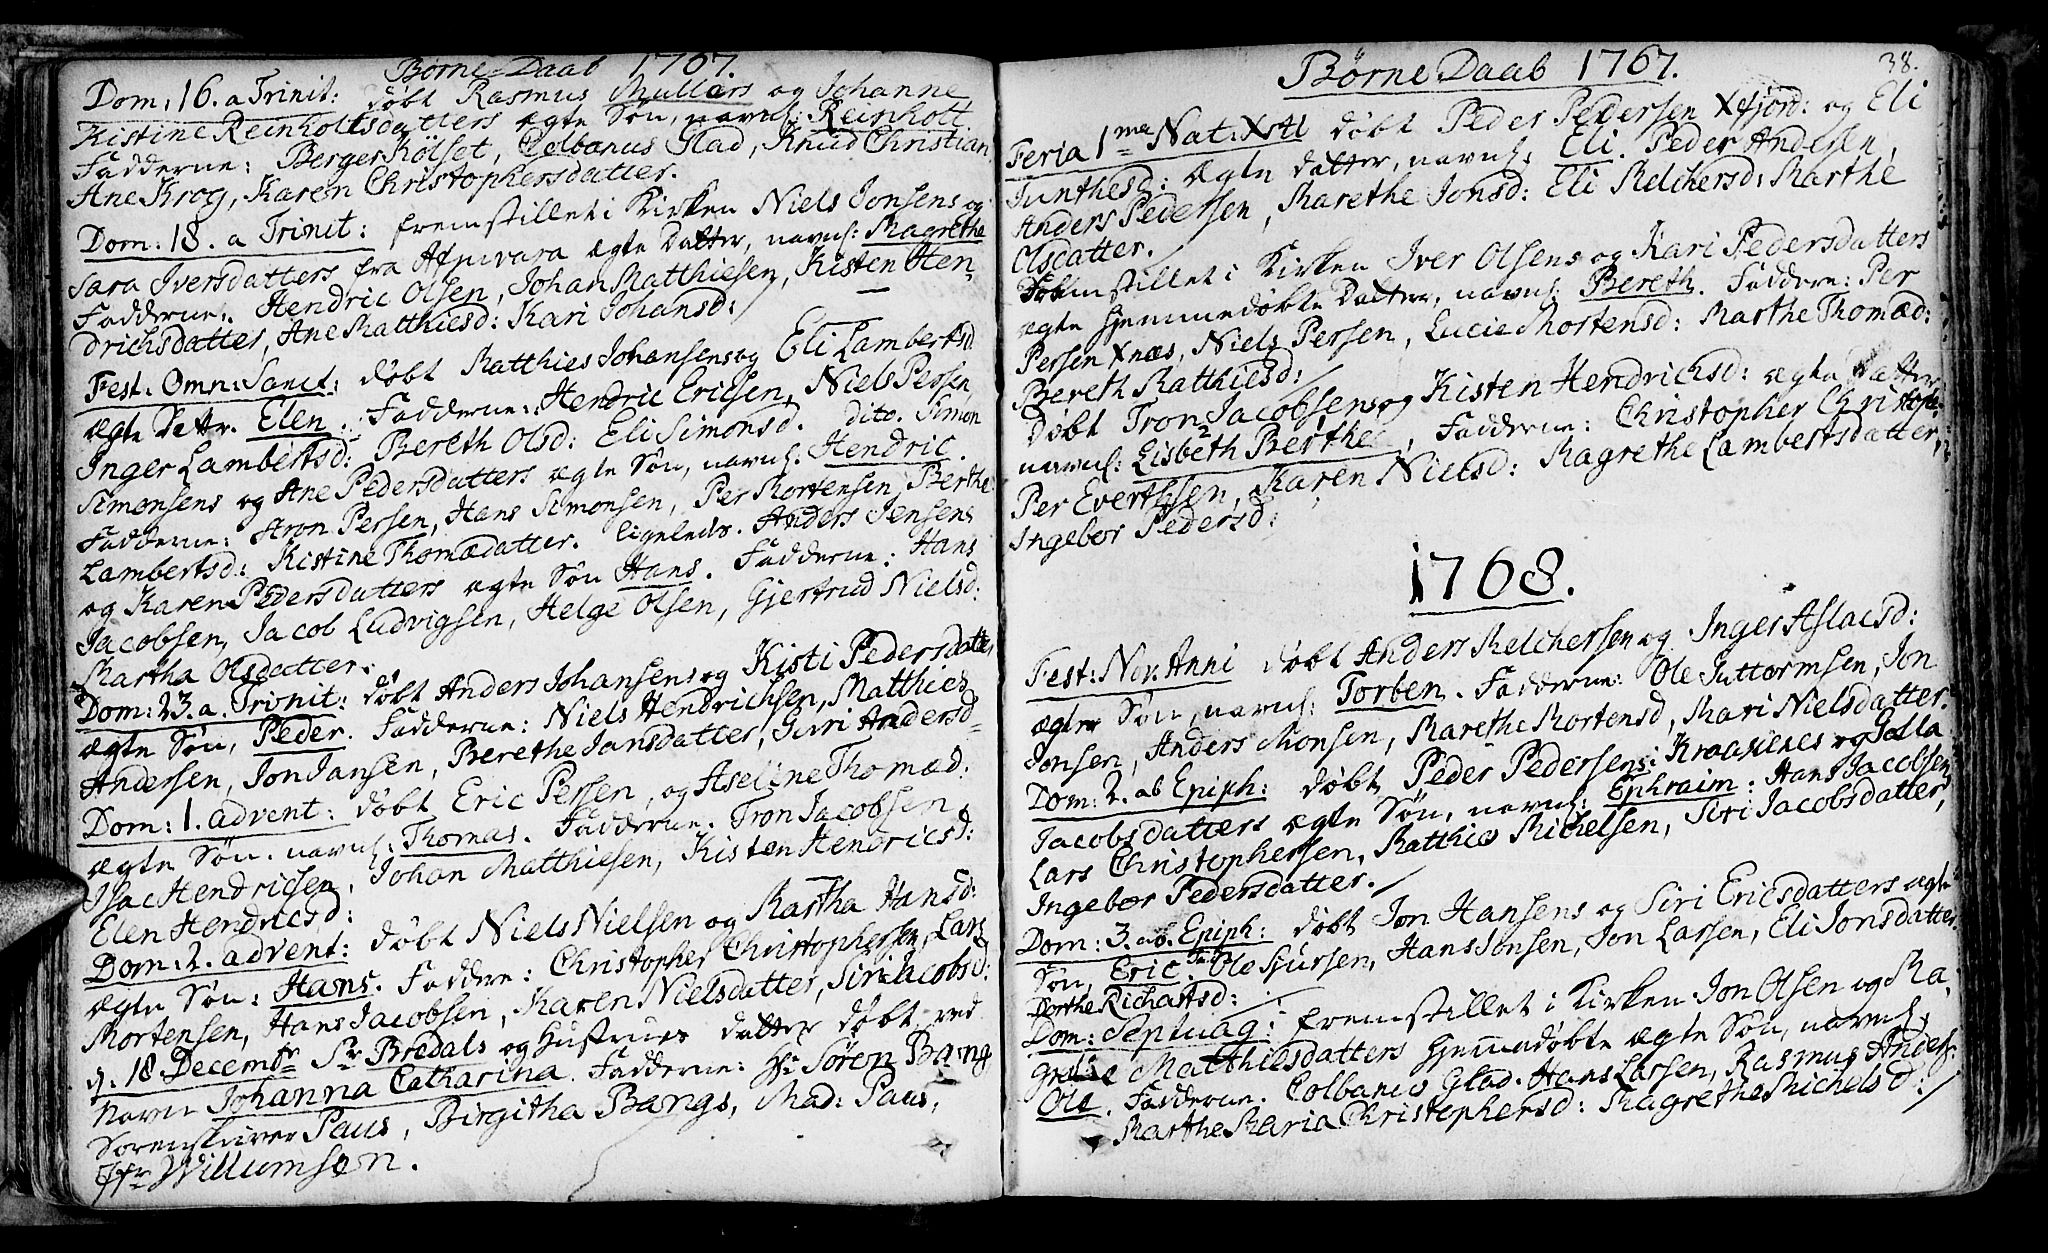 Børne-Daab 1767.
Dom: 16. a Trinit: døbt Rasmus Mullers og Johanne
Kistine Reinholtsdatters ægte Søn, navnl: Reinholt
Fadderne: Berger Rølset, Colbanus Glad, Knud Christian
Ane Krog, Karen Christophersdatter.
Dom: 18. a Trinit: fremstillet i Kirken Niels Jonsens og
Sara Iversdatters fra ægte Datter, navnl: Magrethe
Fadderne: Hendric Olsen, Johan Matthiesen, Kisten Hen-
drichsdatter, Ane Matthiesd: Kari Johansd:
Fest. Omn: Sanct: døbt Matthies Johansens og Eli Lambertsd
ægte Dattr. Elen. Fadderne: Hendric Ericsen, Niels Persen,
Inger Lambertsd: Bereth Olsd: Eli Simonsd. dito. Simon
Simonsens og Ane Pedersdatters ægte Søn, navnl: Hendric.
Fadderne: Aron Persen, Hans Simonsen, Per Mortensen, Berthe
Lambertsd: Kistine Thomædatter. ligeleds. Anders Jensens
og Karen Pedersdatters ægte Søn Hans. Fadderne: Hans
Jacobsen, Jacob Ludvigsen, Helge Olsen, Gjertrud Nielsd:
Martha Olsdatter.
Dom: 23. a. Trinit: døbt Anders Johansens og Kisti Pedersdatte,
ægte Søn, Peder. Fadderne: Niels Hendrichsen, Matthies
Andersen, Jon Jansen, Berethe Jansdatter, Guri Andersd-
Dom: 1. advent: døbt Eric Persen, og Aseline Thomæd:
ægte Søn. navnl: Thomas. Fadderne. Tron Jacobsen,
Isac Hendricsen, Johan Matthiesen, Kisten Hendricsd:
Elen Hendricsd:
Dom: 2. advent: døbt Niels Nielsen og Martha Hansd:
ægte Søn: Hans. Faddere: Christopher Christophersen, Lars
Mortensen, Hans Jacobsen, Karen Nielsdatter, Siri Jacobsd:
d. 18 Decembr Sr Bredals og Hustrues datter døbt ved
Navn Johanna Catharina. Fadderne: Hr Søren Bang
Sorenskriver Paus, Birgitha Bangs, Mad: Paus,
Jfr Willumsen.
38.
Børne Daab 1767.
Feria 1me Nat: Xsti døbt Peder Pedersen Xfjord: og Eli
Gunthesd: ægte datter, navnl. Eli. Peder Andersen,
Anders Pedersen, Marethe Jonsd: Eli Melchersd: Marthe
Olsdatter.
Fremstillet i Kirken Iver Olsens og Kari Pedersdatters
ægte hjemmedøbte Datter, navnl. Bereth. Faddere: Per
Persen Xnæs, Niels Persen, Lucie Mortensd: Marthe Thomæd:
Bereth Matthiesd:
Døbt Tron Jacobsens og Kisten Hendricksd: ægte Datter,
navnl: Lisbeth Berthe, Fadderne: Christopher Christoph:
Per Evertsen, Karen Nielsd: Magrethe Lambertsdatter,
Ingebor Pedersd:
1768.
Fest: Nov: Anni døbt Anders Melchersen og Inger Aslacsd:
ægte Søn, navnl: Torben. Fadderne: Ole Guttormsen, Jon
Jonsen, Anders Monsen, Marethe Mortensd, Mari Nielsdatter.
Dom: 2. ab Epiph: døbt Peder Pedersens: Kraaxenes og Golla
Jacobsdatters ægte Søn, navnl: Ephraim. Hans Jacobsen,
Lars Christophersen, Matthis Michelsen, Siri Jacobsdatter,
Ingebor Pedersdatter.
Dom: 3. ab. Epiph: døbt Jon Hansens og Siri Ericsdatters ægte
Søn, Eric. Ole Sjursen, Hans Jonsen, Jon Larsen, Eli Jonsdatter
Dorthe Richartsd:
Dom: Septuag: fremstillet i Kirken Jon Olsen og Ma,
grethe Matthiesdatters hjemmedøbte ægte Søn, navnl:
Ole. Fadderne. Colbanus Glad. Hans Larsen, Rasmus Anders:
Marthe Maria Christophersd: Magrethe Michelsd: